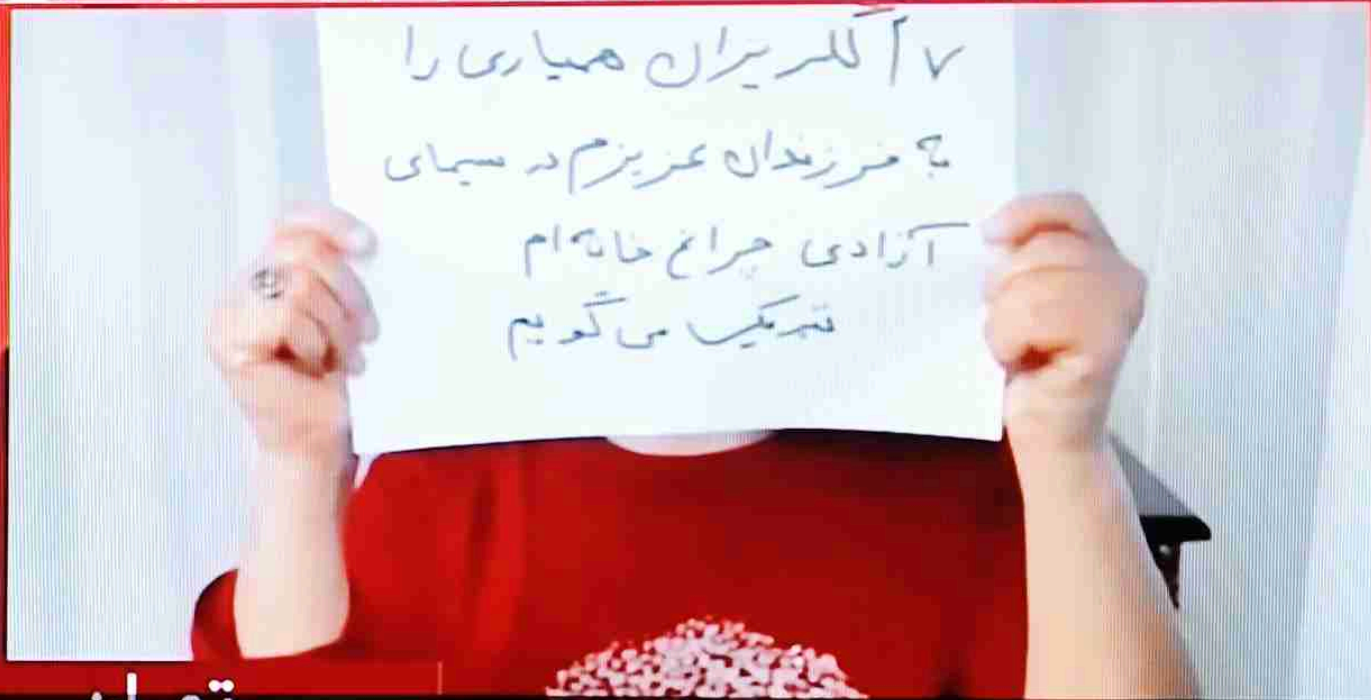 گلریزان همیاری را
به فرزندان عزیزم در سیمای
آزادی چراغ خانه‌ام
تبریک می‌گویم